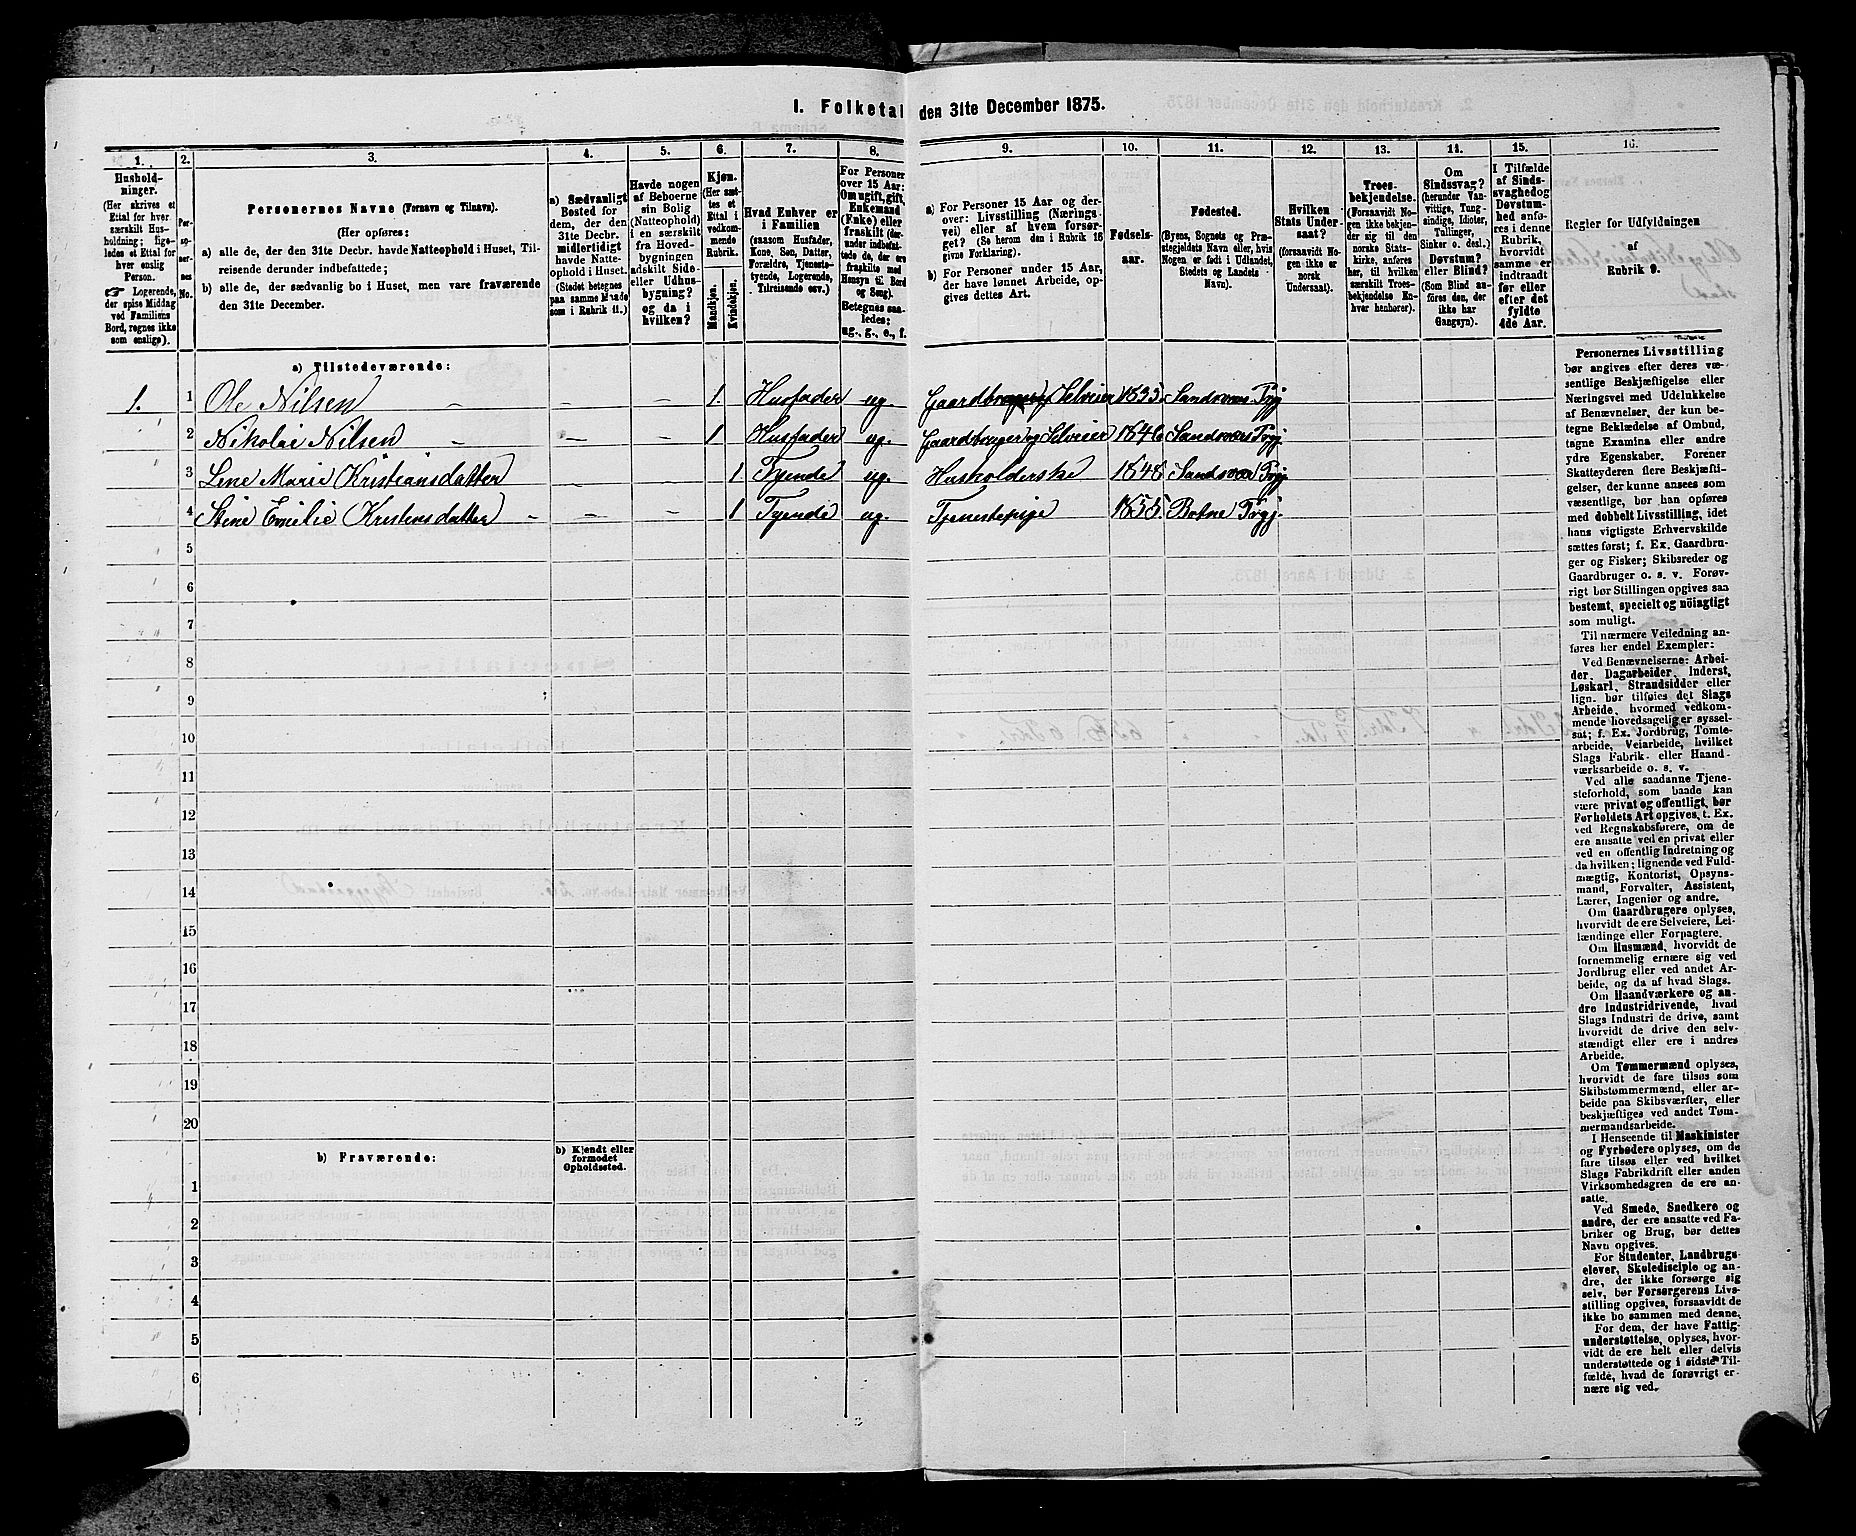 1. Folketal den 31te December 1875.
1. 2. 3. 4. 5. 6. 7. 8. 9. 10. 11. 12. 13. 14. 15. 16.
Hushold-
ninger.
(Her skrives et
Ettal for hver
særskilt Hus-
holdning; lige-
ledes et Ettal for
hver enslig
Person.
☞ Logerende,
der spise Middag
ved Familiens
Bord, regnes ikke
som enslige).
Per-
so-
ner-
nes
No.
Personernes Navne (Fornavn og Tilnavn).
(Her opføres:
a) alle de, der den 31te Decbr. havde Natteophold i Huset, Til-
reisende derunder indbefattede;
b) alle de, der sædvanlig bo i Huset, men vare fraværende
den 31te December.
a) Sædvanligt
Bosted for
dem, der den
31te Decbr.
midlertidigt
havde Natte-
ophold i Huset.
(Stedet betegnes
paa samme Maade
som i Rubrik 11.)
Havde nogen
af Beboerne
sin Bolig
(Natteophold)
i en særskilt
fra Hoved-
bygningen
adskilt Side-
eller Udhus-
bygning?
og da i
hvilken?
Kjøn.
(Her sæt-
tes et
Ettal i
vedkom-
mende
Rubrik.
Mandkjøn.
Kvindekjøn.
Hvad Enhver er
i Familien
(saasom Husfader,
Kone, Søn, Datter,
Forældre, Tjeneste-
tyende, Logerende,
Tilreisende osv.)
For Personer
over 15 Aar:
Om ugift, gift,
Enkemand
(Enke) eller
fraskilt (der-
under indbefat-
tede de, der ere
fraskilte med
Hensyn til Bord
og Seng).
Betegnes saa-
ledes:
ug., g., e., f.
a) For Personer 15 Aar og der-
over: Livsstilling (Nærings-
vei) eller af hvem forsør-
get? (Se herom den i Rubrik 16
givne Forklaring).
b) For Personer under 15 Aar,
der have lønnet Arbeide, op-
gives dettes Art.
Fødsels-
aar.
Fødested.
(Byens, Sognets og Præ-
stegjeldets Navn eller, hvis
Nogen er født i Udlandet,
Stedets og Landets
Navn).
Hvilken
Stats Under-
saat?
(forsaavidt No-
gen ikke er
norsk
Undersaat).
Troes-
bekjendelse.
(Forsaavidt No-
gen ikke bekjen-
der sig til den
norske Stats-
kirke, anføres
her, til hvilken
særskilt Troes-
bekjendelse En-
hver henhører).
Om
Sindssvag?
(herunder Van-
vittige, Tung-
sindige, Idioter,
Tullinger,
Sinker o. desl.)
Døvstum?
eller Blind?
(Som Blind an-
føres den, der
ikke har
Gangsyn).
I Tilfælde
af Sinds-
svaghed og
Døvstum-
hed anfø-
res i denne
Rubrik,
hvorvidt
samme er
indtraadt
før eller
efter det
fyldte
4de Aar.
Regler for Udfyldningen
af
Rubrik 9.
a) Tilstedeværende:
1. 1 Ole Nilsen – – 1. Husfader ug. Gaardbruger Selveier 1833. Sandsvær Prgj
2 Nikolai Nilsen – – – 1 Husfader ug. Gaardbruger og Selveier 1846 Sandsvær Prgj.
3 Lene Marie Kristiansdatter – – 1 Tyende ug. Husholderske 1848 Sandsvær Prgj.
4 Stine Emilie Kristensdatter – – – 1 Tyende ug. Tjenestepige 1855. Botne Prgj.
5
6
7
8
9
10
11
12
13
14
15
16
17
18
19
20
b) Fraværende:
b) Kjendt eller
formodet
Opholdssted.
1
2
3
4
5
6
Personernes Livsstilling
bør angives efter deres væ-
sentlige Beskjæftigelse eller
Næringsvei med Udelukkelse
af Benævnelser, der kun be-
tegne Beklædelse af Ombud,
tagne Examina eller andre
ydre Egenskaber. Forener
Skatteyderen flere Beskjæfti-
gelser, der kunne ansees som
væsentlige, bør han opføres
med dobbelt Livsstilling, idet
hans vigtigste Erhvervskilde
sættes først; f. Ex. Gaardbru-
ger og Fisker; Skibsreder og
Gaardbruger o. s. v. Forøv-
rigt bør Stillingen opgives saa
bestemt, specielt og nöiagtigt
som muligt.
Til nærmere Veiledning an-
føres her endel Exempler:
Ved Benævnelserne: Arbei-
der, Dagarbeider, Inderst,
Løskarl, Strandsidder eller
lign. bør tilføies det Slags
Arbeide, hvormed vedkom-
mende hovedsagelig er syssel-
sat; f. Ex. Jordbrug, Tomte-
arbeide, Veiarbeide, hvilket
Slags Fabrik- eller Haand-
værksarbeide o. s. v.
Ved alle saadanne Tjene-
steforhold, som baade kan
være privat og offentligt, bør
Forholdets Art opgives, t. Ex.
ved Regnskabsførere, om de
ere ansatte ved en privat eller
ved en offentlig Indretning og
da hvilken; lignende ved Fuld-
mægtig, Kontorist, Opsyns-
mand, Forvalter, Assistent,
Lærer, Ingeniør og andre.
Om Gaardbrugere oplyses,
hvorvidt de ere Selveiere, Lei-
lændinge eller Forpagtere.
Om Husmænd, hvorvidt de
fornemmelig ernære sig ved
Jordbrug eller ved andet Ar-
beide, og da af hvad Slags.
Om Haandværkere og an-
dre Industridrivende, hvad
Slags Industri de drive, samt
hvorvidt de drive den selv-
stændigt eller ere i andres
Arbeide.
Om Tømmermænd oplyses,
hvorvidt de fare tilsøs som
Skibstømmermænd, eller ar-
beide paa Skibsværfter, eller
beskjæftiges ved andet Tøm-
mermandsarbeide.
I Henseende til Maskinister
og Fyrbødere oplyses, om de
fare tilsøs eller ved hvilket
Slags Fabrikdrift eller anden
Virksomhedsgren de ere an-
satte.
Ved Smede, Snedkere og
andre, der ere ansatte ved Fa-
briker og Brug, bør dettes
Navn opgives.
For Studenter, Landbrugs-
elever, Skoledisciple og an-
dre, der ikke forsørge sig
selv, bør Forsørgerens Livs-
stilling opgives, forsaavidt de
ikke bo sammen med denne.
For dem, der have Fattig-
understøttelse, oplyses, hvor-
vidt de ere helt eller delvis
understøttede og i sidste Til-
fælde, hvad de forøvrigt er-
nære sig ved.